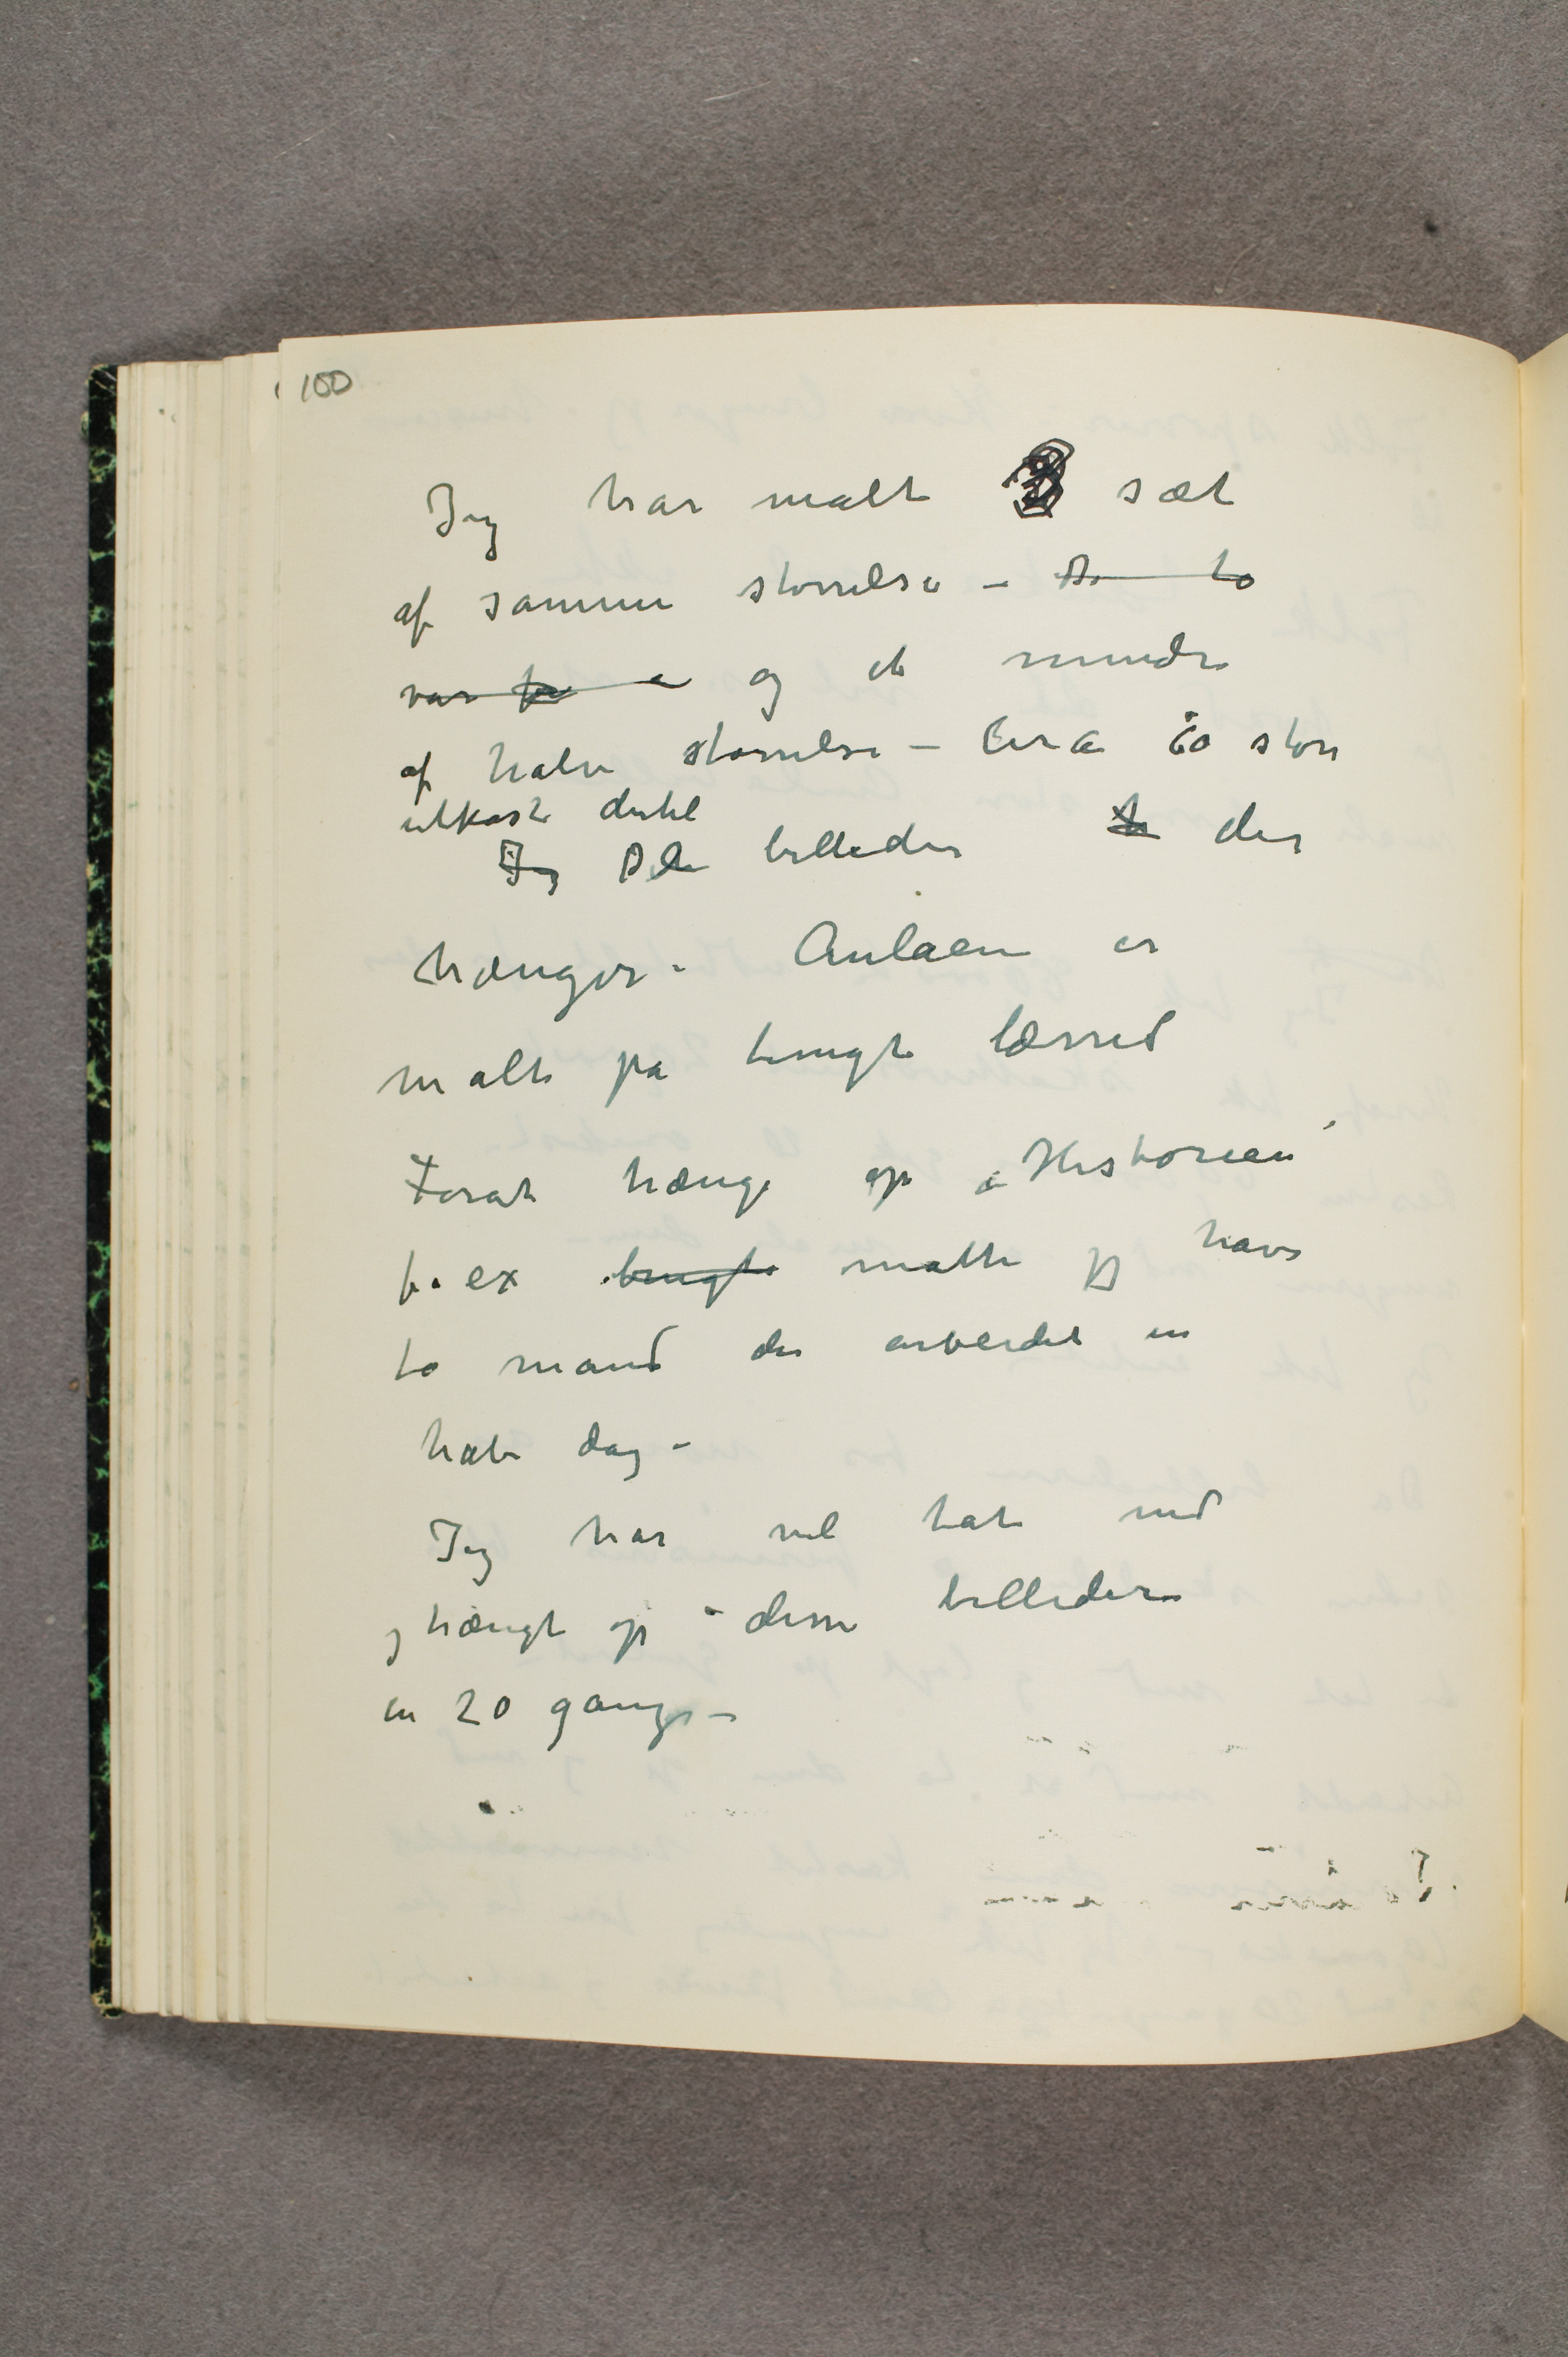 100
Jeg har malt 3 sæt
af samme størrelse – De to
var og et mindre
af halv størrelse – Circa 60 store
utkast dertil
Jeg De billeder der
hænger i Aulaen er
malt på tungt lærred
Forat hænge op „Historien"
f. ex brugte måtte jeg have
to mand der arbeidet en
halv dag –
Jeg har vel tat ned
og hængt op disse billeder
en 20 gange –